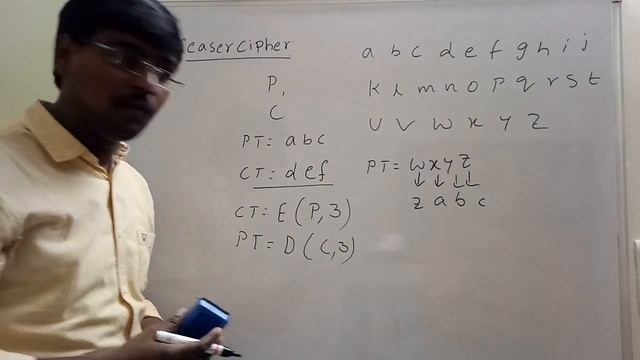 ceaserCipher
P,
C
PT= abc
CT= def
CT= E(P,3)
PT= D(C,3)
a b c d e f g h i j
k l m n o p q r s t
u v w x y z
PT= wxyz
↓ ↓ ↓ ↓
z a b c